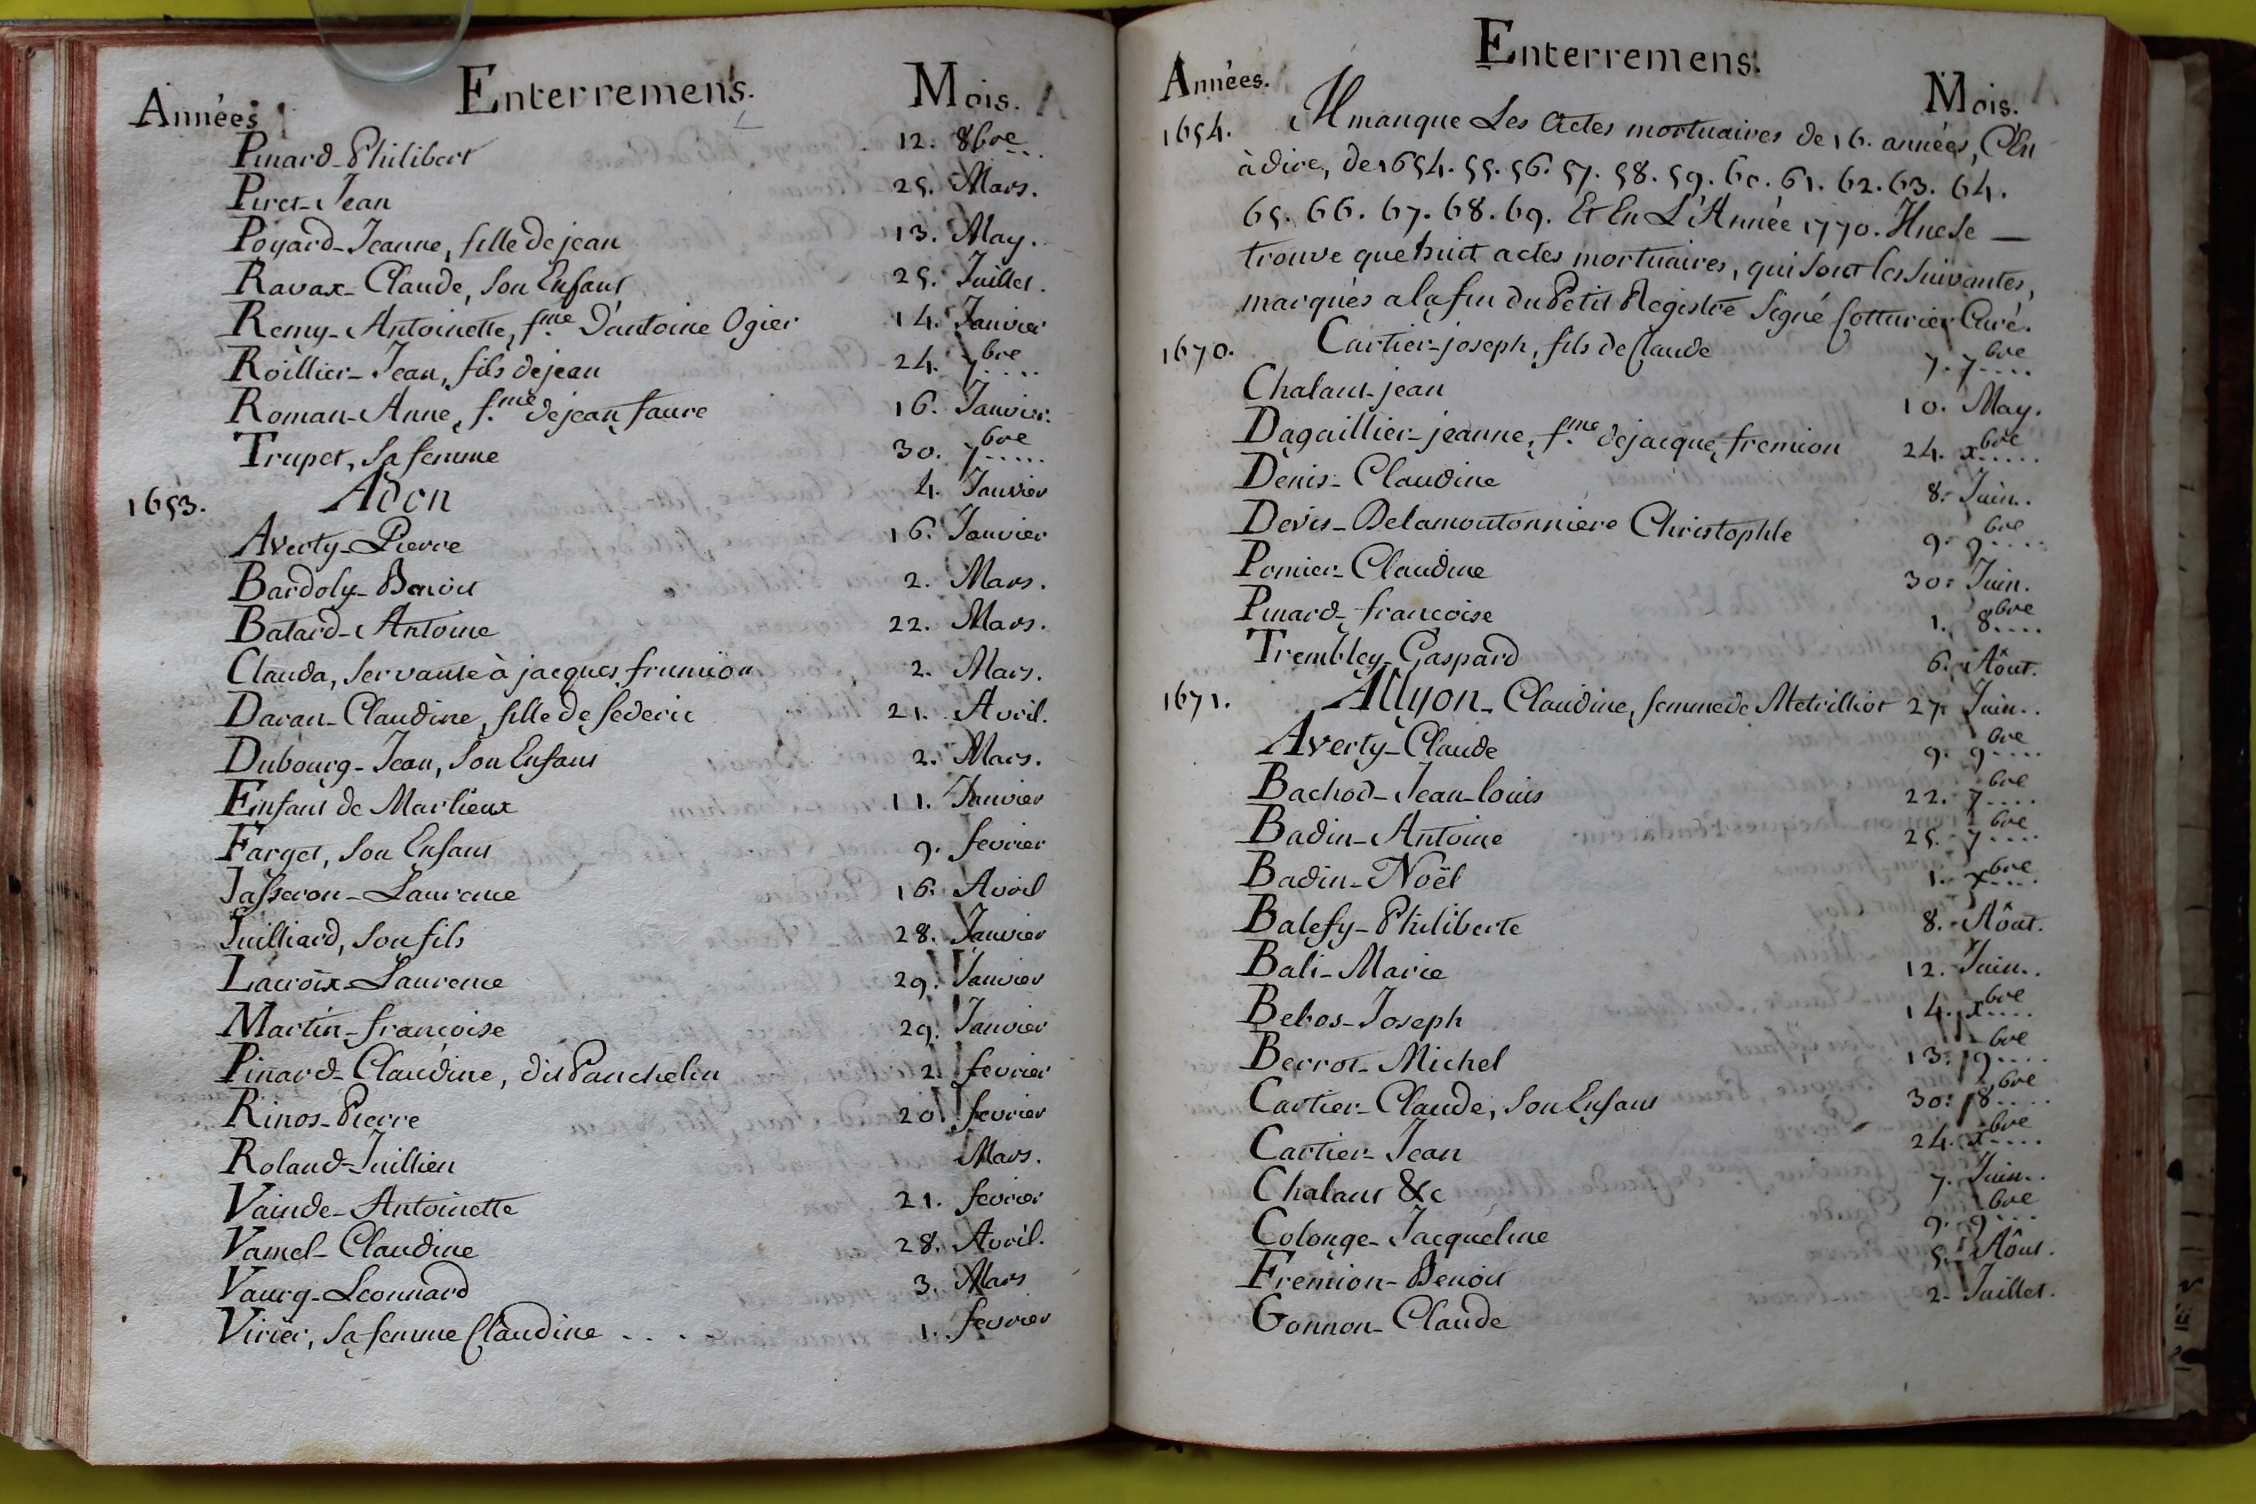 Années Enterremens. Mois.
Pinard-Philibert 12. 8bre
Piret-Jean 25. Mars.
Poyard-Jeanne, fille de jean 13. May.
Ravax-Claude, Son Enfant 25. Juillet.
Remy-Antoinette, f.me D'antoine Ogier 14. Janvier
Roillier-Jean, fils de jean 24. 7bre
Roman-Anne, f.me de jean faure 16. Janvier.
Trupet, Sa femme 30. 7bre
1653. Adon 4. Janvier
Averty-Pierre 16. Janvier
Bardoly-Benoit 2. Mars.
Batard-Antoine 22. Mars.
Clauda, Servante à jacques frumion 2. Mars.
Daran-Claudine, fille de federic 21. Avril.
Dubourg-Jean, Son Enfant 2. Mars.
Enfant de Marlieux 11. Janvier
Farget, Son Enfant 9. fevrier
Jasseron-Laurence 16. Avril
Juilliard, Son fils 28. Janvier
Lacroix-Laurence 29. Janvier
Martin-françoise 29. Janvier
Pinard-Claudine, dit Panchelin 2. fevrier
Rinos-Pierre 20. fevrier
Roland-Juillien Mars.
Vainde-Antoinette 21. fevrier
Vamel-Claudine 28. Avril.
Vaurg-Leonnard 3. Mars
Virier, Sa femme Claudine . . . 1. fevrier
Années. Enterremens. Mois.
1654. Il manque Les Actes mortuaires de 16. années, C'en
à dire, de 1654. 55. 56. 57. 58. 59. 60. 61. 62. 63. 64.
65. 66. 67. 68. 69. Et En L'Année 1770. Il ne Se —
trouve que huit actes mortuaires, qui Sont les Suivantes,
marqués a la fin du Petit Registre Signé Cotturier Curé.
1670. Cartier-joseph, fils de Claude 7. 7bre
Chalant-jean 10. May.
Dagaillier-jeanne, f.me de jacque fremion 24. xbre
Denis-Claudine 8. Juin.
Devis-Delamontonniere Christophle 9. 9bre
Pomier-Claudine 30. Juin.
Pinard-françoise 1. 8bre
Trembley-Gaspard 6. Aôut.
1671. Allyon-Claudine, femme de Metrilliot 27. Juin.
Averty-Claude 9. 9bre
Bachod-Jean-louis 22. 7bre
Badin-Antoine 25. 7bre
Badin-Noël 1. xbre
Balefy-Philiberte 8. Aôut.
Bali-Marie 12. Juin.
Bebos-Joseph 14. xbre
Berrot-Michel 13. 9bre
Cartier-Claude, Son Enfant 30. 8bre
Cartier-Jean 24. xbre
Chalant &c 7. Juin.
Colonge-Jacqueline 9. 9bre
Fremion-Benoit 5. Aôut.
Gonnon-Claude 2. Juillet.